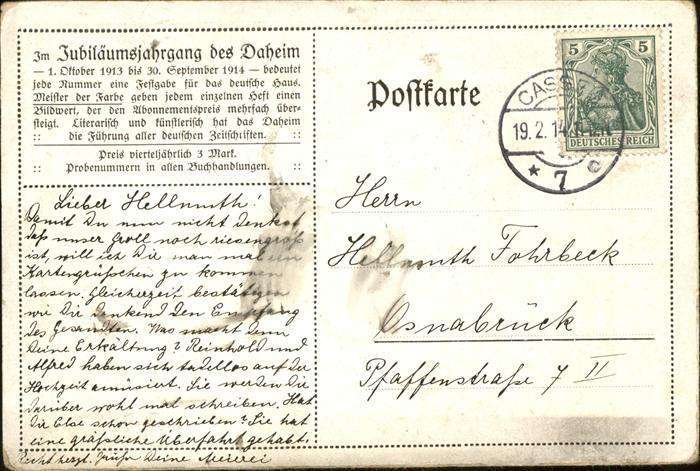 Im Jubiläumsjahrgang des Daheim
— 1. Oktober 1913 bis 30. September 1914 — bedeutet
jede Nummer eine Festgabe für das deutsche Haus.
Meister der Farbe geben jedem einzelnen Heft einen
Bildwert, der den Abonnementspreis mehrfach über-
steigt. Literarisch und künstlerisch hat das Daheim
:: die Führung aller deutschen Zeitschriften. ::
Preis vierteljährlich 3 Mark.
:: Probenummern in allen Buchhandlungen. ::
Lieber Hellmuth!
Damit Du nun nicht denkst
daß unser Groll noch riesengroß
ist, will ich Dir man mal ein
Kartengrüßchen zu kommen
lassen. Gleicherzeit bestätigen
wir Dir dankend den Empfang
des Gesandten. Was macht denn
Deine Erkältung? Reinhold und
Alfred haben sich tadellos auf der
Hochzeit amüsiert. Sie werden Dir
darüber wohl mal schreiben. Hat
Dir Else schon geschrieben? Sie hat
eine gräßliche Überfahrt gehabt.
Recht herzl. Grüße Deine Meierei
Postkarte
5 5
DEUTSCHES REICH
CASSEL
19.2.14
* 7 c
Herrn
Hellmuth Fohrbeck
Osnabrück
Pfaffenstraße 7 II